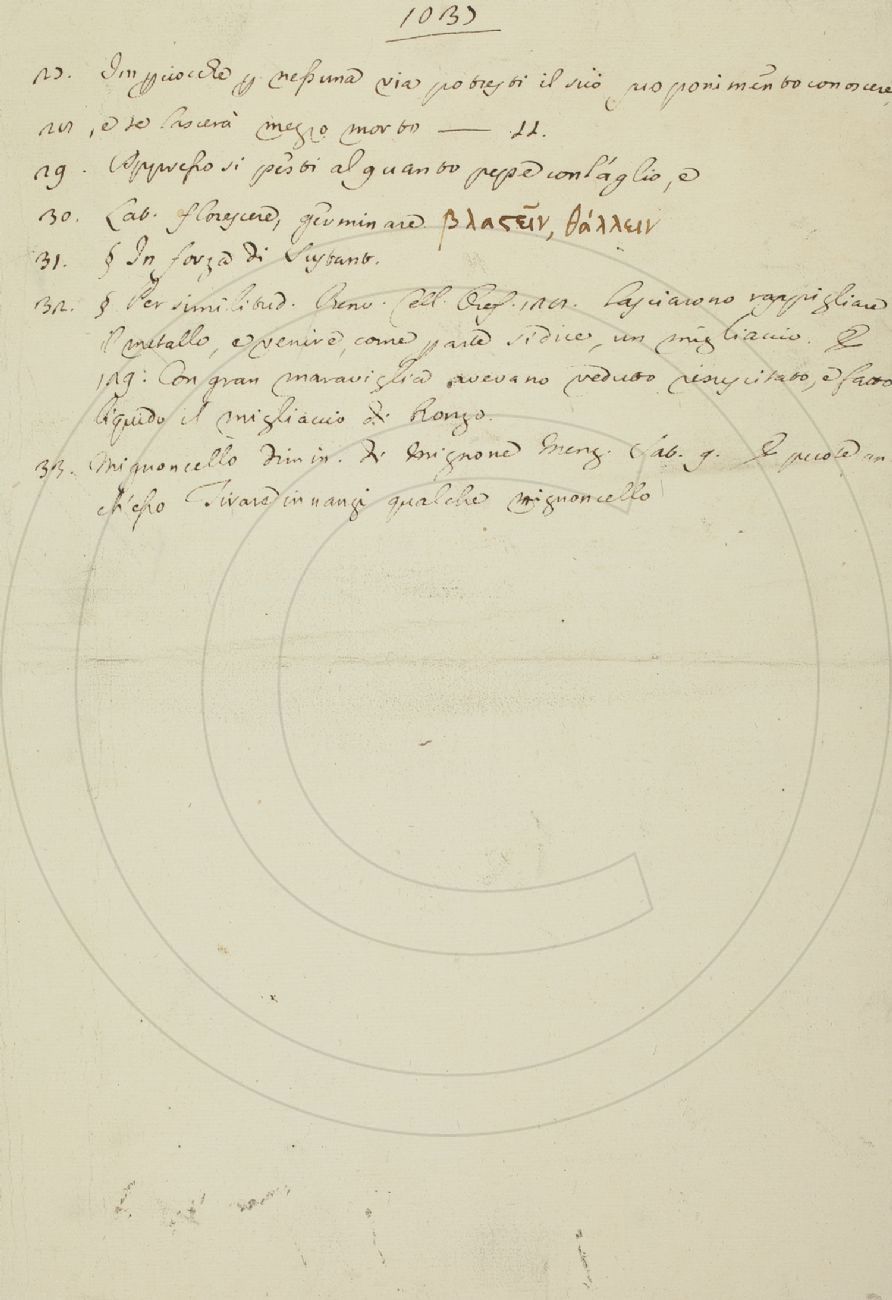 1037
27. Imp̱ciocche p̱ nessuna via potresti il suo proponimento conoscere
28 , e te lascerà mezzo morto — LL.
29. Appresso si pesti alquanto pepe con l'aglio, e
30. Lat. florescere, germinare. βλαϛεῖν, θάλλειν
31. § In forza di Sustant.
32. § Per similitud. Benv. Cell. Oref. 128. Lasciarono rappigliare
il metallo, e venire, come par te si dice, un migliaccio. E
129: Con gran maraviglia avevano veduto risuscitato, e fatto
liquido il migliaccio di bronzo.
33. Mignoncello dimin. di Mignone Menz. Sat. 9. E puote an
ch'esso Tirare innanzi qualche mignoncello